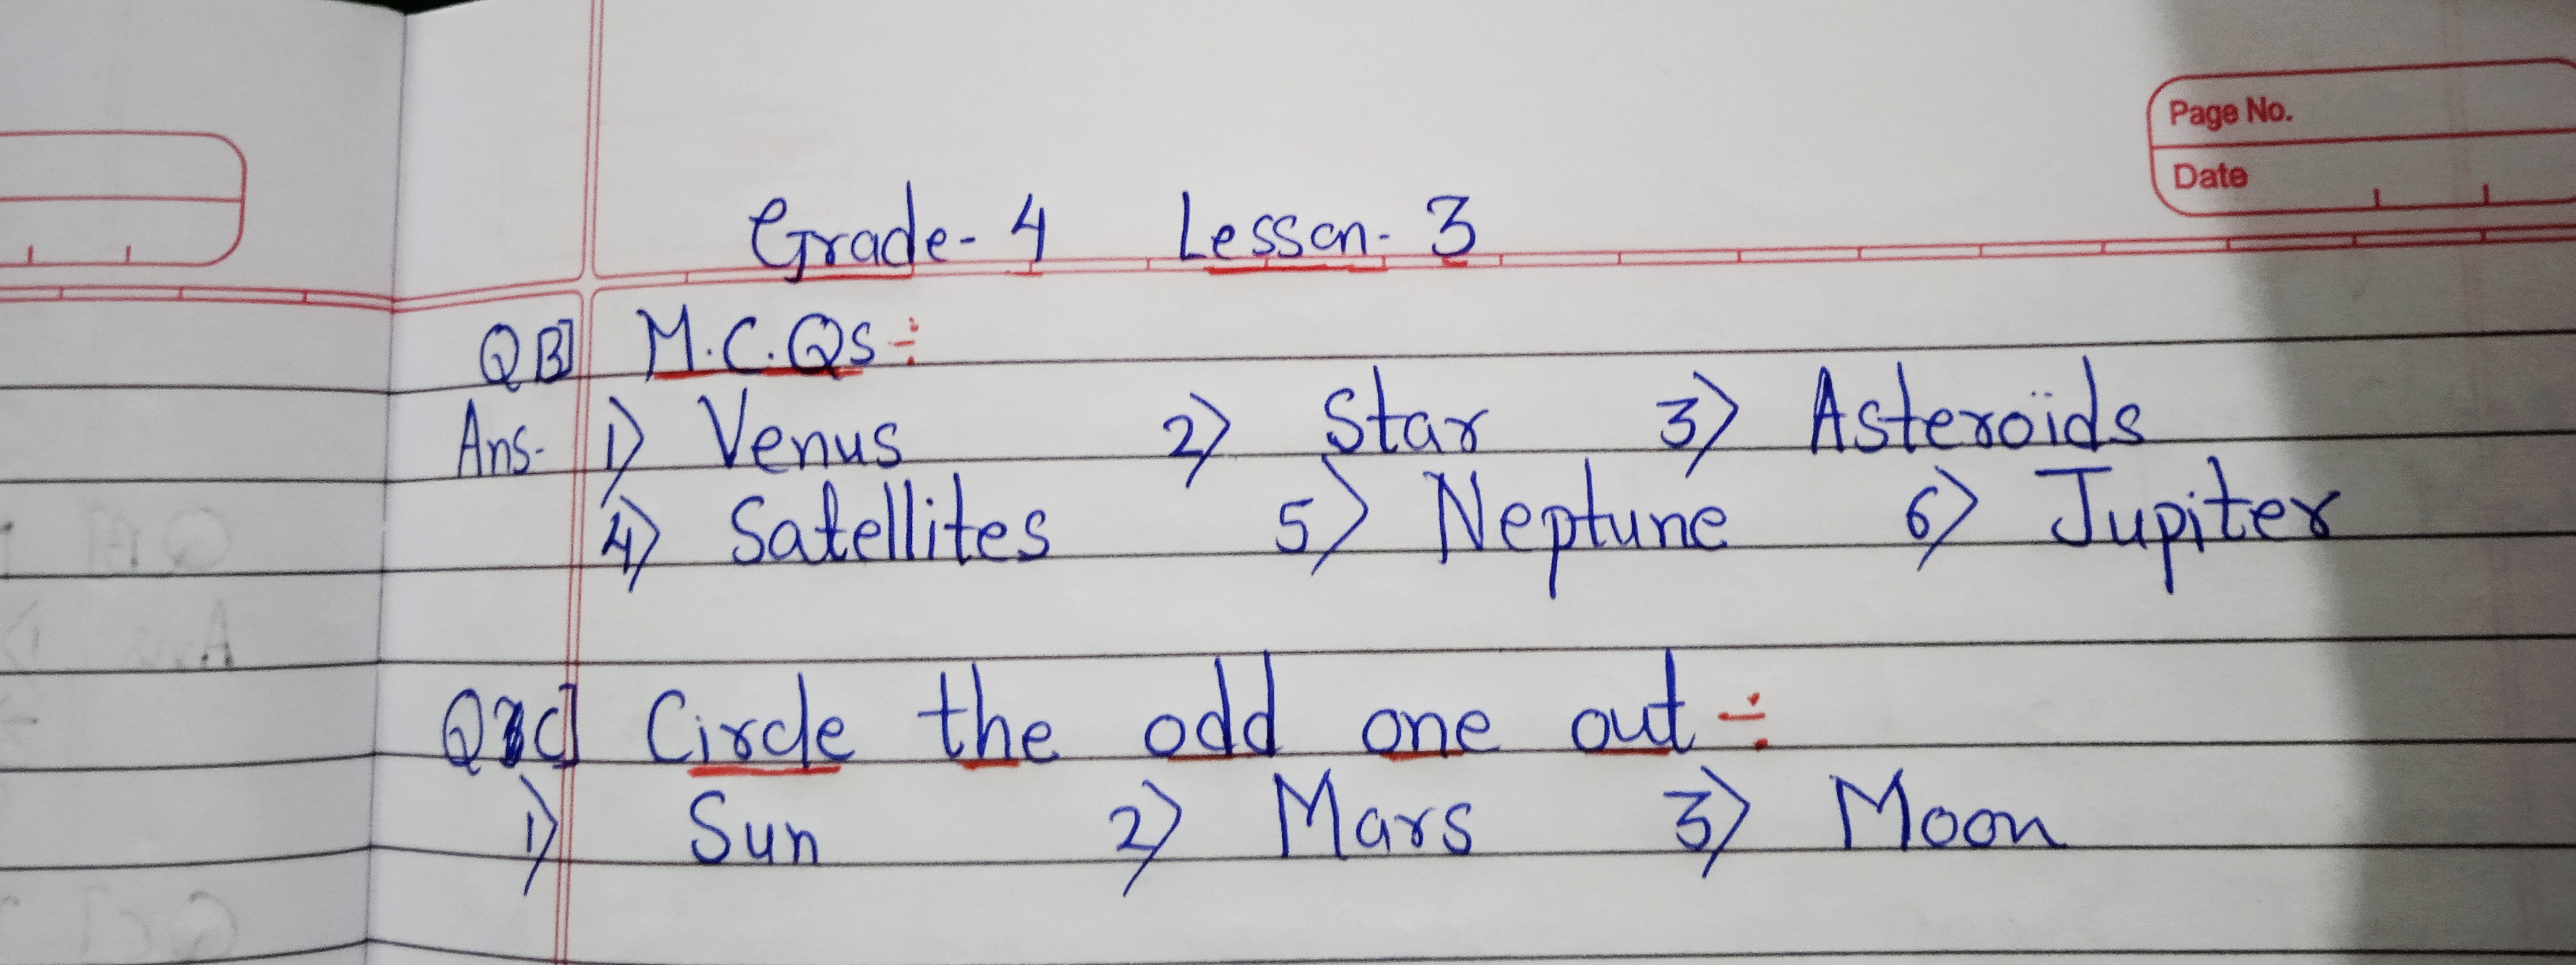 Page No.
Date
Grade- 4 Lesson- 3
Q B] M.C.Qs ÷
Ans- 1) Venus 2) Star 3) Asteroïds
4) Satellites 5) Neptune 6) Jupiter
Q C] Circle the odd one out ÷
1) Sun 2) Mars 3) Moon